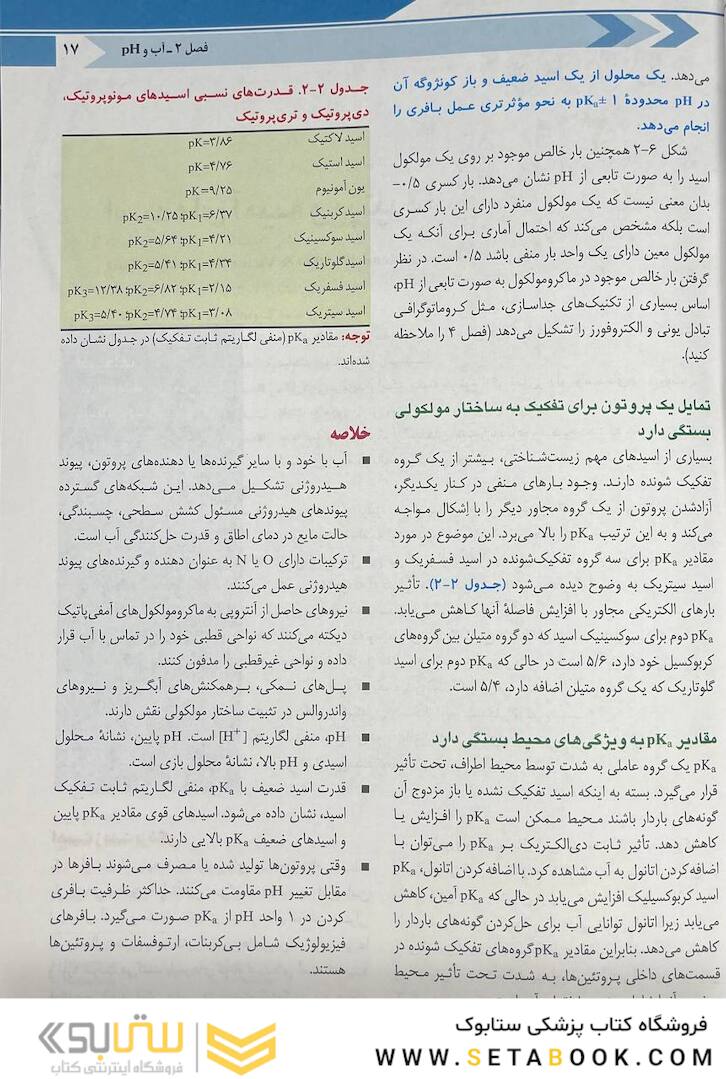 فصل ۲ ـ آب و pH
۱۷
می‌دهد. یک محلول از یک اسید ضعیف و باز کونژوگه آن
در pH محدودهٔ ۱ ±pKa به نحو مؤثرتری عمل بافری را
انجام می‌دهد.
شکل ۶-۲ همچنین بار خالص موجود بر روی یک مولکول
اسید را به صورت تابعی از pH نشان می‌دهد. بار کسری ۰/۵-
بدان معنی نیست که یک مولکول منفرد دارای این بار کسری
است بلکه مشخص می‌کند که احتمال آماری برای آنکه یک
مولکول معین دارای یک واحد بار منفی باشد ۰/۵ است. در نظر
گرفتن بار خالص موجود در ماکرومولکول به صورت تابعی از pH،
اساس بسیاری از تکنیک‌های جداسازی، مثل کروماتوگرافی
تبادل یونی و الکتروفورز را تشکیل می‌دهد (فصل ۴ را ملاحظه
کنید).
تمایل یک پروتون برای تفکیک به ساختار مولکولی
بستگی دارد
بسیاری از اسیدهای مهم زیست‌شناختی، بیشتر از یک گروه
تفکیک شونده دارند. وجود بارهای منفی در کنار یکدیگر،
آزادشدن پروتون از یک گروه مجاور دیگر را با اشکال مواجه
می‌کند و به این ترتیب pKa را بالا می‌برد. این موضوع در مورد
مقادیر pKa برای سه گروه تفکیک‌شونده در اسید فسفریک و
اسید سیتریک به وضوح دیده می‌شود (جدول ۲-۲). تأثیر
بارهای الکتریکی مجاور با افزایش فاصلهٔ آنها کاهش می‌یابد.
pKa دوم برای سوکسینیک اسید که دو گروه متیلن بین گروه‌های
کربوکسیل خود دارد، ۵/۶ است در حالی که pKa دوم برای اسید
گلوتاریک که یک گروه متیلن اضافه دارد، ۵/۴ است.
مقادیر pKa به ویژگی‌های محیط بستگی دارد
pKa یک گروه عاملی به شدت توسط محیط اطراف، تحت تأثیر
قرار می‌گیرد. بسته به اینکه اسید تفکیک نشده یا باز مزدوج آن
گونه‌های باردار باشند محیط ممکن است pKa را افزایش یا
کاهش دهد. تأثیر ثابت دی‌الکتریک بر pKa را می‌توان با
اضافه‌کردن اتانول به آب مشاهده کرد. با اضافه‌کردن اتانول، pKa
اسید کربوسیلیک افزایش می‌یابد در حالی که pKa آمین، کاهش
می‌یابد زیرا اتانول توانایی آب برای حل‌کردن گونه‌های باردار را
کاهش می‌دهد. بنابراین مقادیر pKa گروه‌های تفکیک شونده در
قسمت‌های داخلی پروتئین‌ها، به شدت تحت تأثیر محیط
جدول ۲-۲. قدرت‌های نسبی اسیدهای مونوپروتیک،
دی‌پروتیک و تری‌پروتیک
اسید لاکتیک pK=۳/۸۶
اسید استیک pK=۴/۷۶
یون آمونیوم pK=۹/۲۵
اسید کربنیک pK1=۶/۳۷؛ pK2=۱۰/۲۵
اسید سوکسینیک pK1=۴/۲۱؛ pK2=۵/۶۴
اسید گلوتاریک pK1=۴/۳۴؛ pK2=۵/۴۱
اسید فسفریک pK1=۲/۱۵؛ pK2=۶/۸۲؛ pK3=۱۲/۳۸
اسید سیتریک pK1=۳/۰۸؛ pK2=۴/۷۴؛ pK3=۵/۴۰
توجه: مقادیر pKa (منفی لگاریتم ثابت تفکیک) در جدول نشان داده
شده‌اند.
خلاصه
■ آب با خود و با سایر گیرنده‌ها یا دهنده‌های پروتون، پیوند
هیدروژنی تشکیل می‌دهد. این شبکه‌های گسترده
پیوندهای هیدروژنی مسئول کشش سطحی، چسبندگی،
حالت مایع در دمای اطاق و قدرت حل‌کنندگی آب است.
■ ترکیبات دارای O یا N به عنوان دهنده و گیرنده‌های پیوند
هیدروژنی عمل می‌کنند.
■ نیروهای حاصل از آنتروپی به ماکرومولکول‌های آمفی‌پاتیک
دیکته می‌کنند که نواحی قطبی خود را در تماس با آب قرار
داده و نواحی غیرقطبی را مدفون کنند.
■ پل‌های نمکی، برهمکنش‌های آبگریز و نیروهای
واندروالس در تثبیت ساختار مولکولی نقش دارند.
■ pH، منفی لگاریتم [H+] است. pH پایین، نشانهٔ محلول
اسیدی و pH بالا، نشانهٔ محلول بازی است.
■ قدرت اسید ضعیف با pKa، منفی لگاریتم ثابت تفکیک
اسید، نشان داده می‌شود. اسیدهای قوی مقادیر pKa پایین
و اسیدهای ضعیف pKa بالایی دارند.
■ وقتی پروتون‌ها تولید شده یا مصرف می‌شوند بافرها در
مقابل تغییر pH مقاومت می‌کنند. حداکثر ظرفیت بافری
کردن در ۱ واحد pH از pKa صورت می‌گیرد. بافرهای
فیزیولوژیک شامل بی‌کربنات، ارتوفسفات و پروتئین‌ها
هستند.
فروشگاه کتاب پزشکی ستابوک
WWW.SETABOOK.COM
ستابوک
فروشگاه اینترنتی کتاب